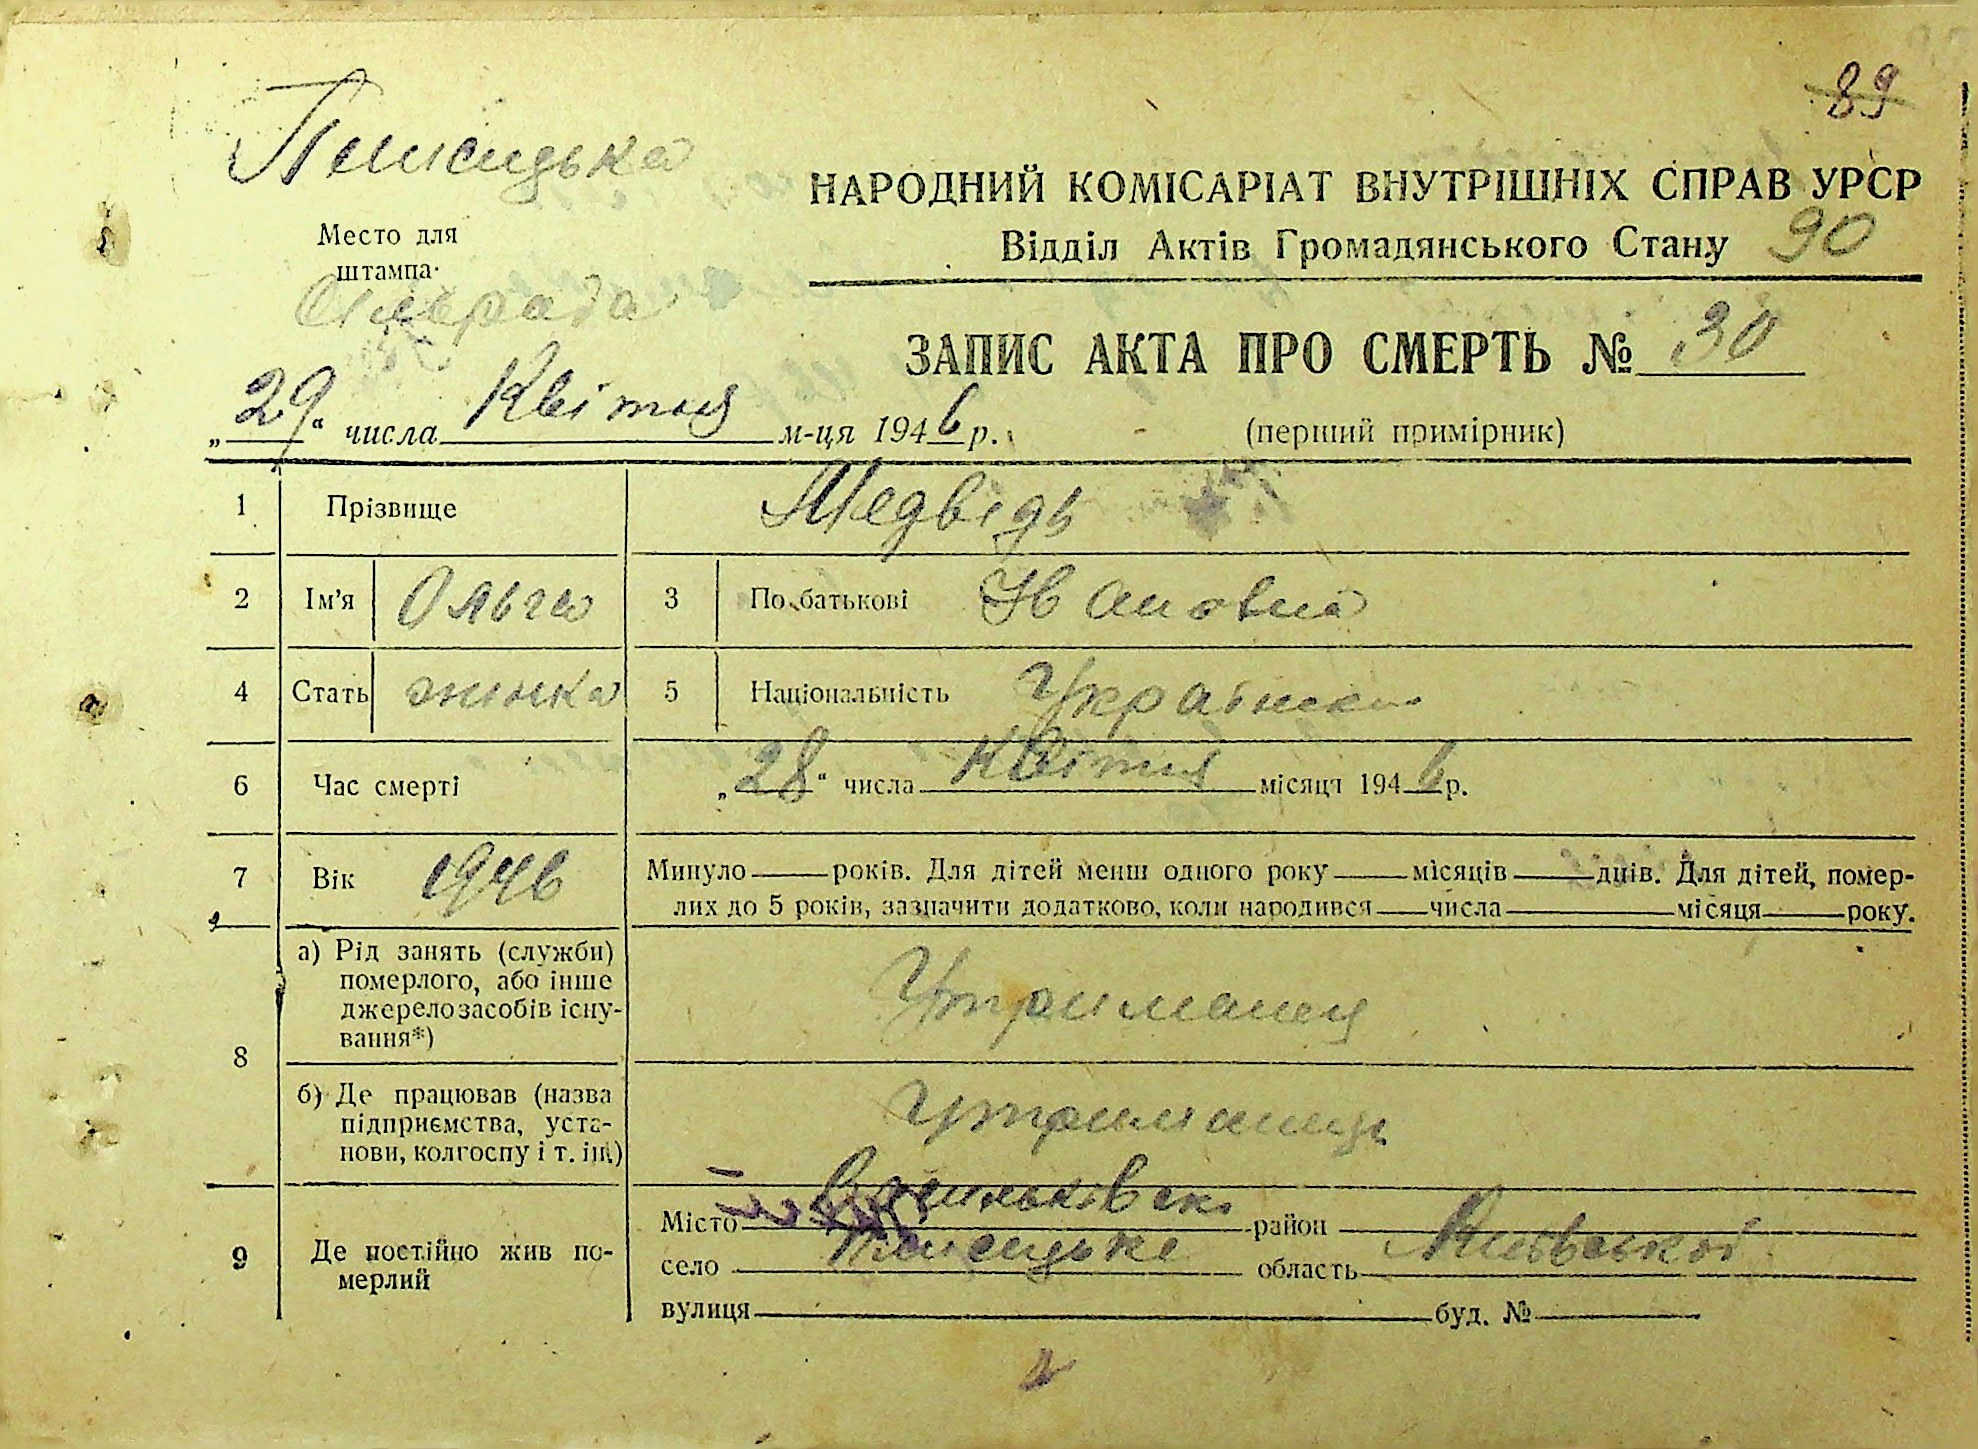 89
Плисицька
НАРОДНИЙ КОМІСАРІАТ ВНУТРІШНІХ СПРАВ УРСР
Место для
штампа
Відділ Актів Громадянського Стану 90
Сільрада
ЗАПИС АКТА ПРО СМЕРТЬ № 30
„29“ числа Квітня м-ця 1946 р.
(перший примірник)
1 Прізвище Медвідь
2 Ім'я Ольга 3 По батькові Івановна
4 Стать жінка 5 Національність Українка
6 Час смерті „28“ числа Квітня місяця 1946 р.
7 Вік 1946 Минуло року років. Для дітей менш одного року місяців днів. Для дітей, помер-
лих до 5 років, зазначити додатково, коли народився числа місяця року.
8 а) Рід занять (служби)
померлого, або інше
джерело засобів існу-
вання*)
Утриманец
б) Де працював (назва
підприємства, уста-
нови, колгоспу і т. ін.)
Утриманець
9 Де постійно жив по-
мерлий
Місто Васильківскі район
село Плисецьке область Київської
вулиця буд. №
2